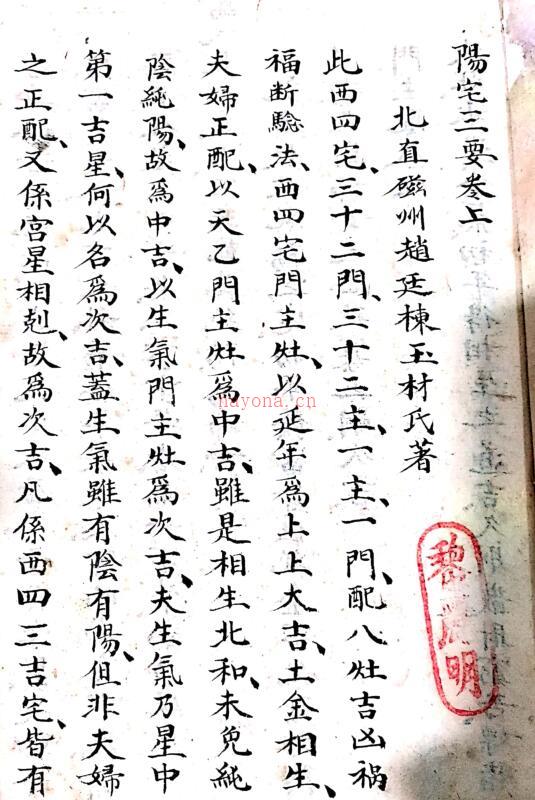 陽宅三要卷上
北直磁州趙廷棟玉材氏著
此西四宅、三十二門、三十二主、一主、一門、配八灶吉凶禍
福断驗法、西四宅門主灶、以延年爲上上大吉、土金相生、
夫婦正配、以天乙門主灶爲中吉、雖是相生北和、未免純
陰純陽、故爲中吉、以生氣門主灶爲次吉、夫生氣乃星中
第一吉星、何以名爲次吉、蓋生氣雖有陰有陽、但非夫婦
之正配、又係宮星相剋、故爲次吉、凡係西四三吉宅、皆有
明
hayona.cn